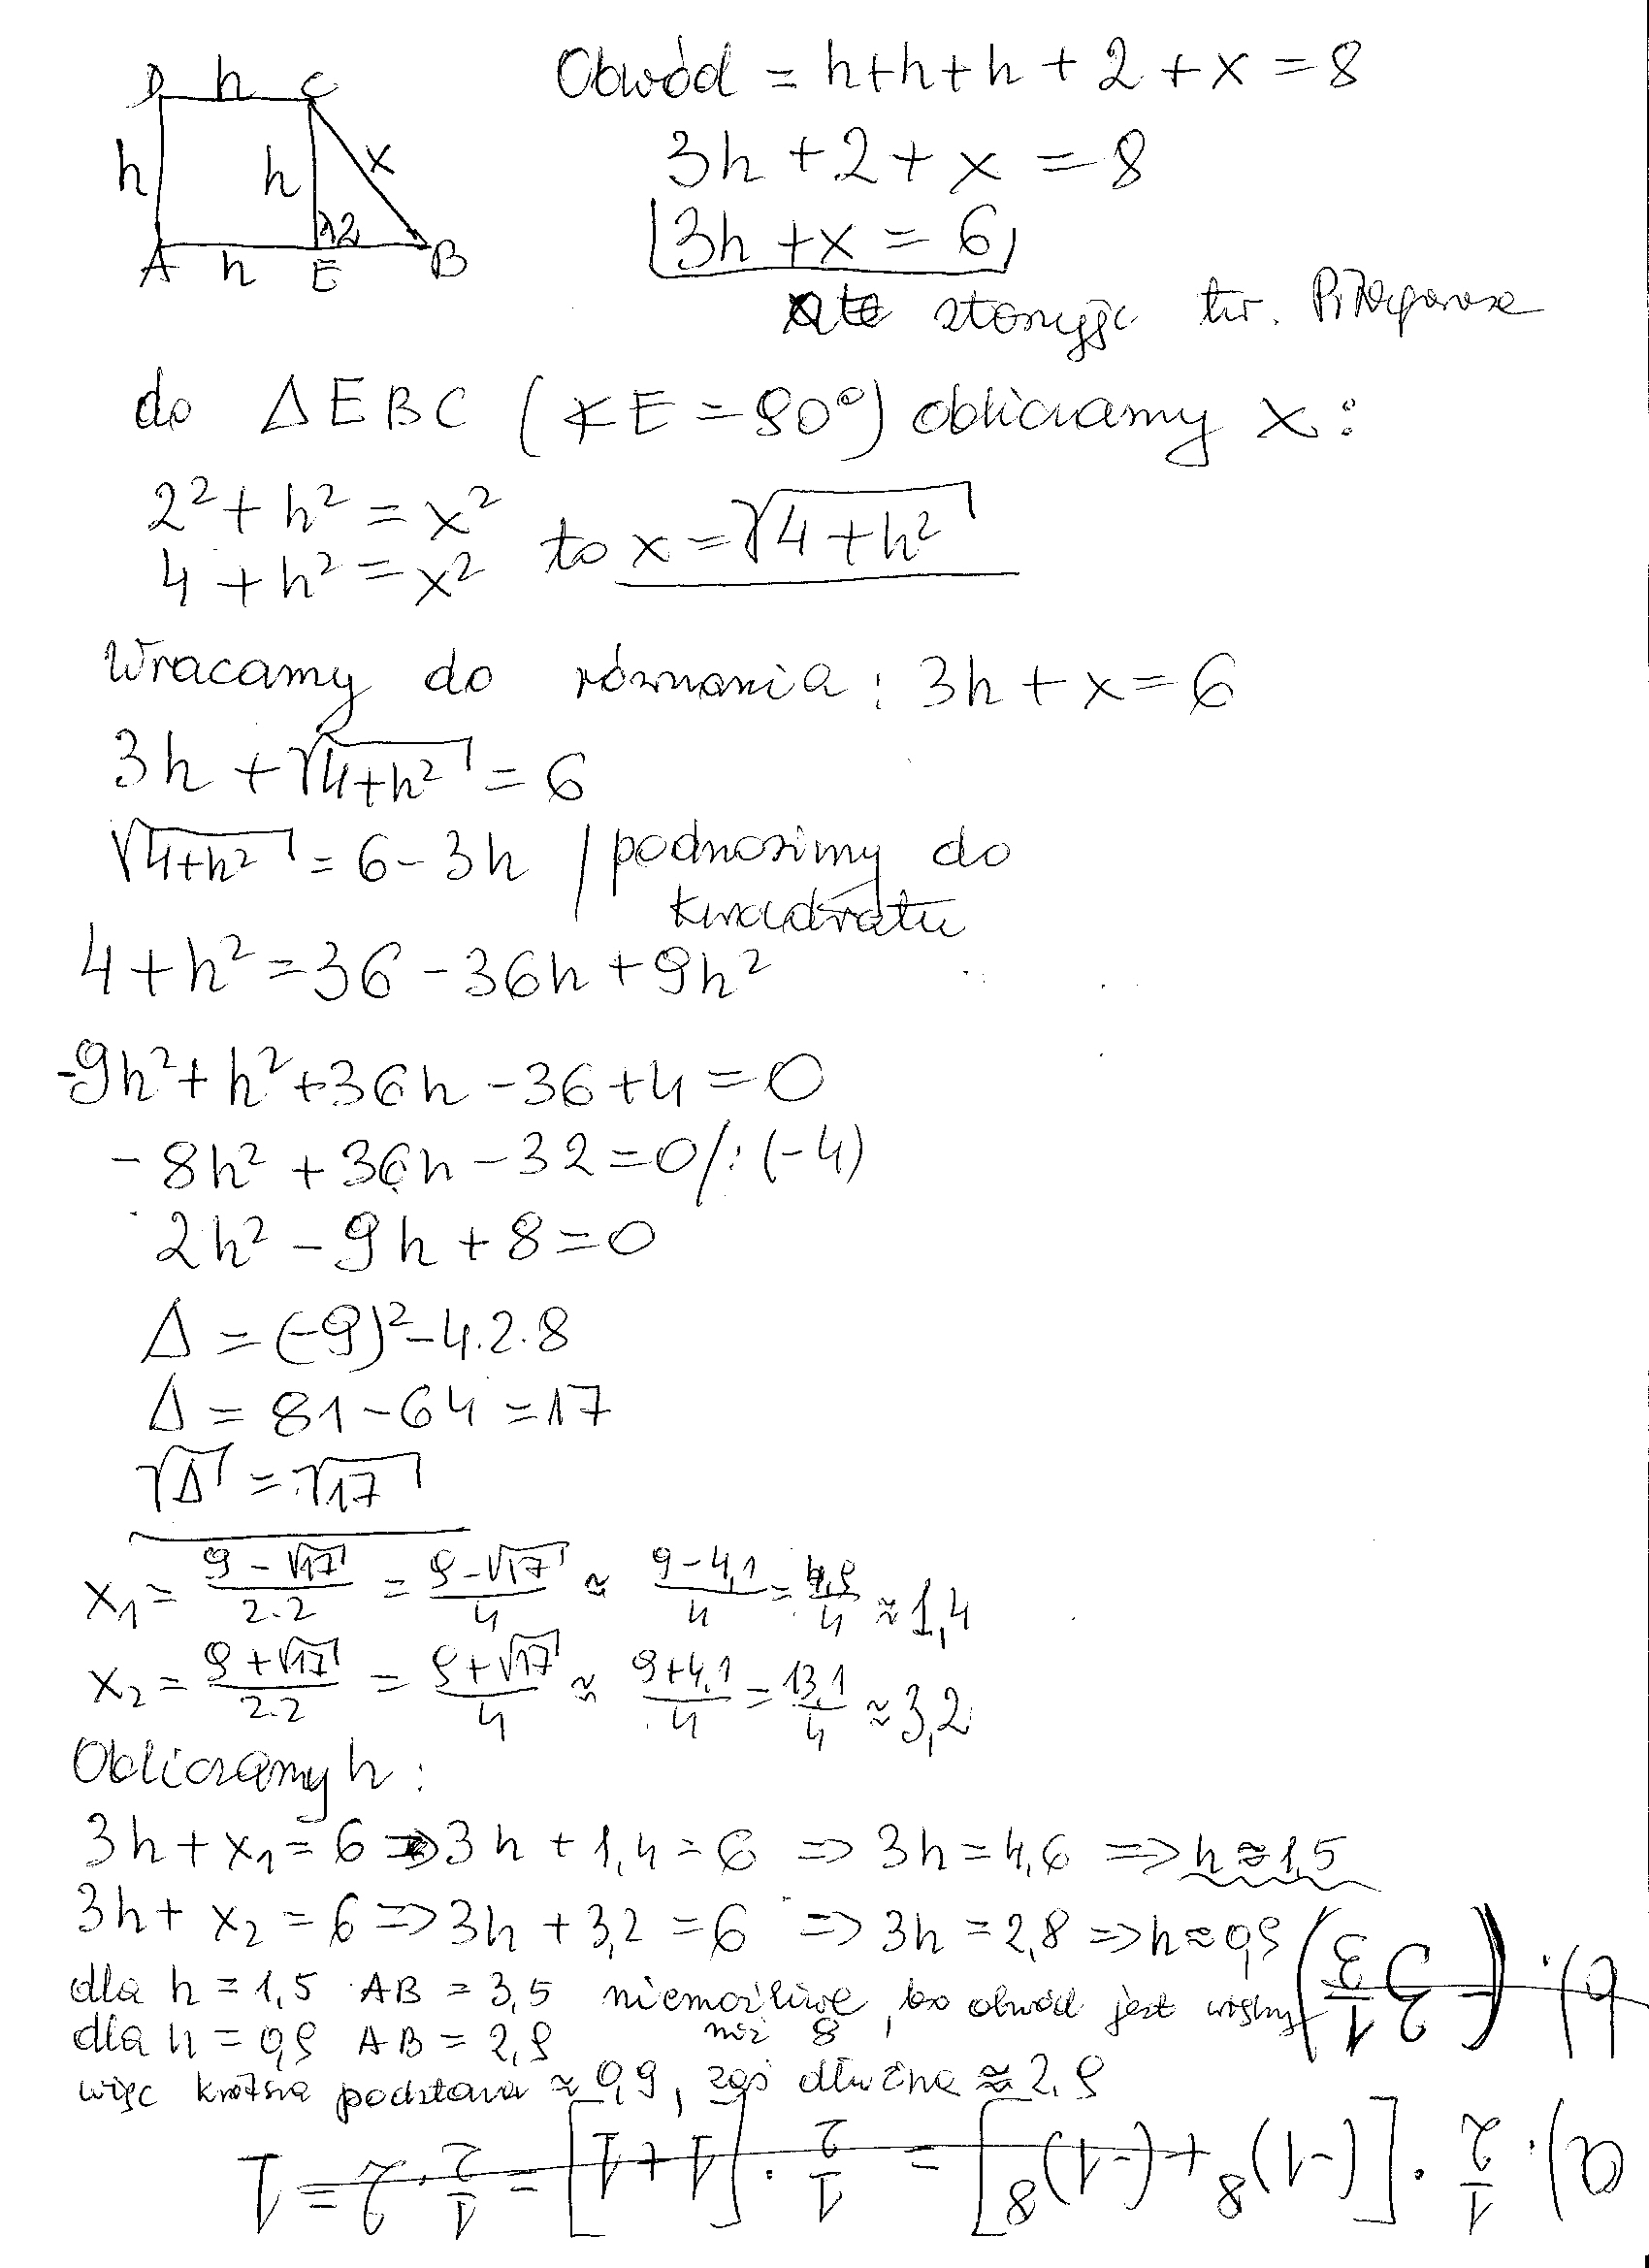 D h C
h h x
A h E 2 B
Obwód = h+h+h + 2 + x = 8
3h + 2 + x = 8
3h + x = 6
stosując tw. Pitagorasa
do ΔEBC (∢E = 90°) obliczamy x:
2² + h² = x²
4 + h² = x² to x = √(4+h²)
Wracamy do równania: 3h + x = 6
3h + √(4+h²) = 6
√(4+h²) = 6 - 3h / podnosimy do
kwadratu
4 + h² = 36 - 36h + 9h²
-9h² + h² + 36h - 36 + 4 = 0
- 8h² + 36h - 32 = 0 /: (-4)
2h² - 9h + 8 = 0
Δ = (-9)² - 4·2·8
Δ = 81 - 64 = 17
√Δ = √17
x₁ = (9 - √17)/(2·2) = (9 - √17)/4 ≈ (9 - 4,1)/4 = 4,9/4 ≈ 1,4
x₂ = (9 + √17)/(2·2) = (9 + √17)/4 ≈ (9 + 4,1)/4 = 13,1/4 ≈ 3,2
Obliczamy h:
3h + x₁ = 6 => 3h + 1,4 = 6 => 3h = 4,6 => h ≈ 1,5
3h + x₂ = 6 => 3h + 3,2 = 6 => 3h = 2,8 => h ≈ 0,9
dla h = 1,5 AB = 3,5 niemożliwe, bo obwód jest większy
niż 8
dla h = 0,9 AB = 2,9
więc krótsza podstawa ≈ 0,9, zaś dłuższa ≈ 2,9
a). 1/2 · [(-1)⁸ + (-1)⁸] = 1/2 · [1+1] = 1/2 · 2 = 1